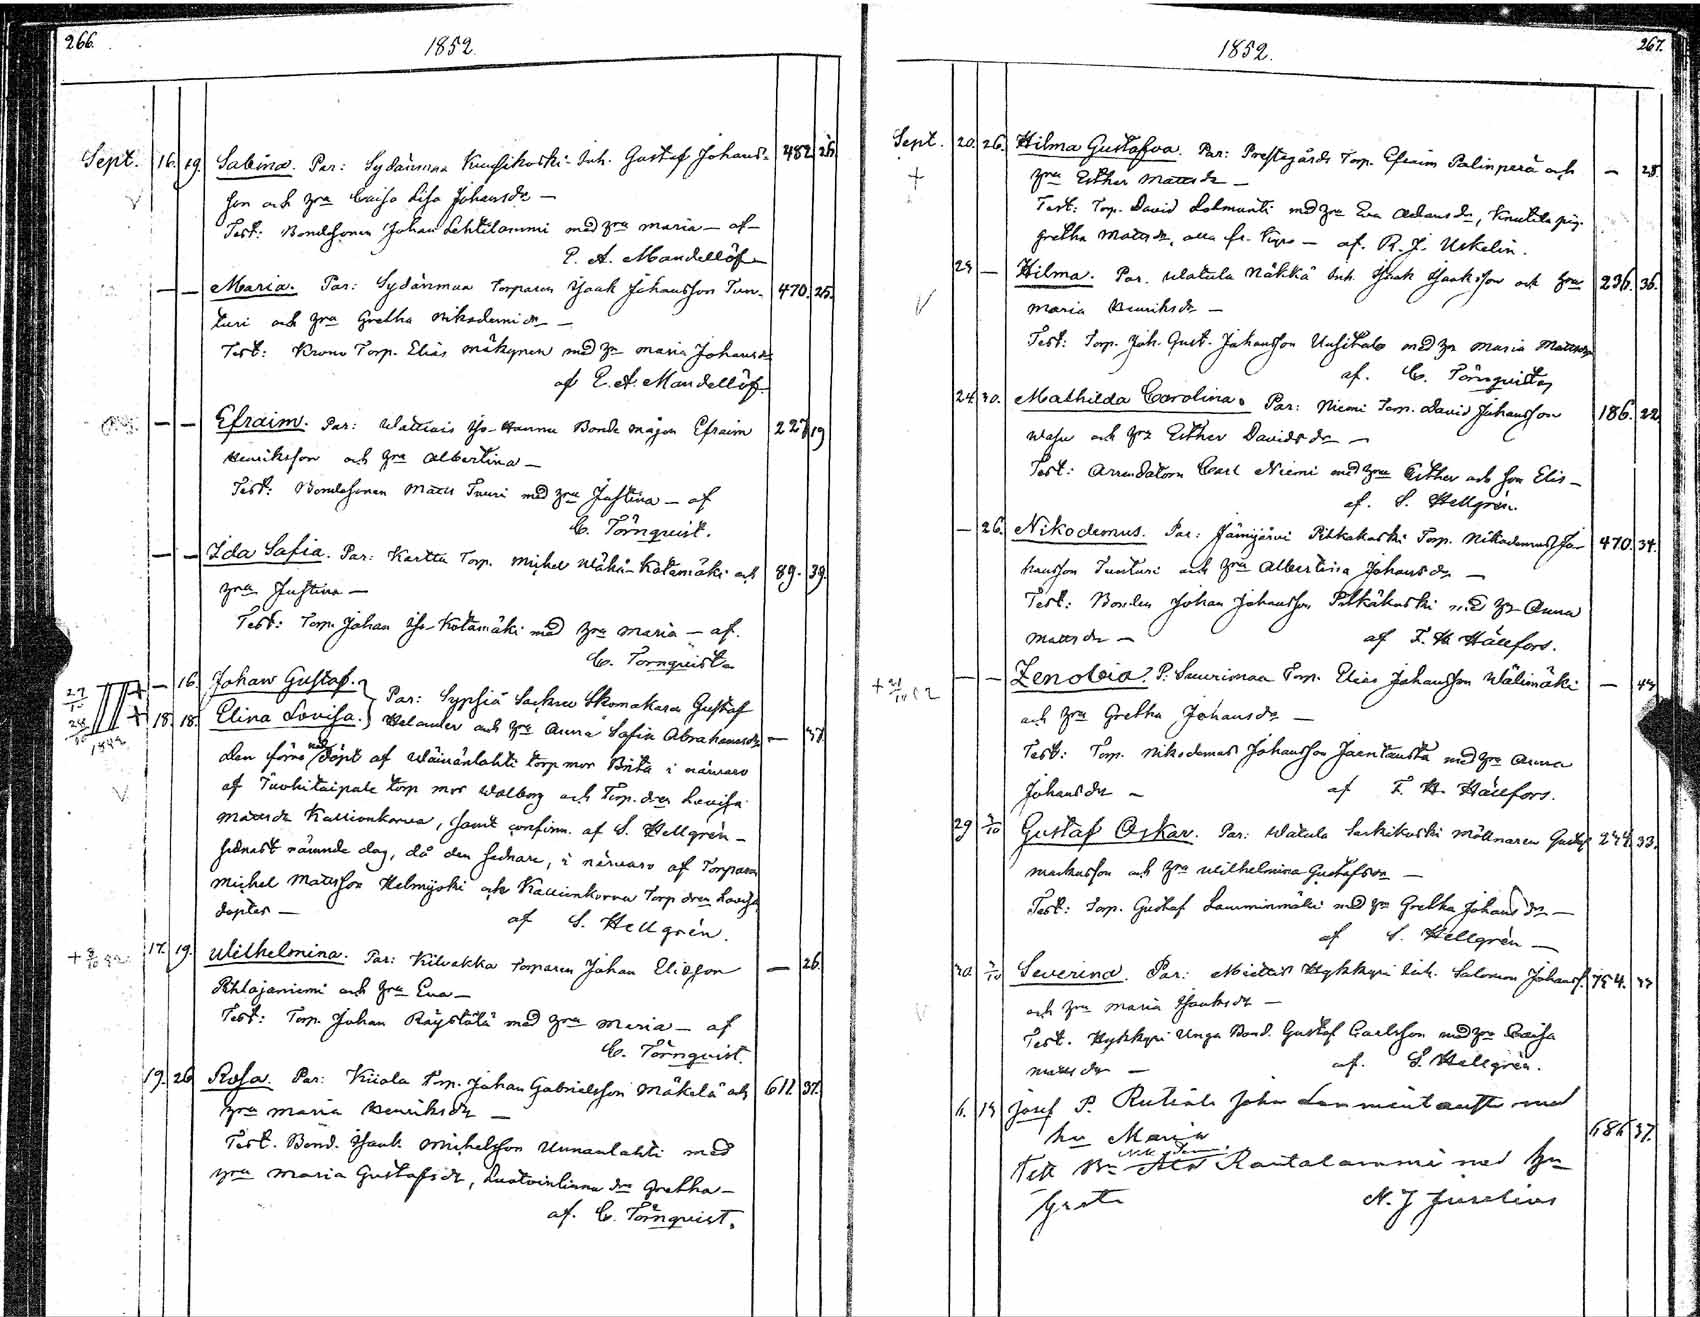 266.
1852.
Sept. 16. 19. Sabina. Par: Sydänmaa Kuusikoski Inh. Gustaf Johans- 482 25.
son och hru Caisa Lisa Johansdr —
Test: Bondesonen Johan Lehtilammi med hru Maria — af
E. A. Mandellöf
— — Maria. Par: Sydänmaa Torparen Isaak Johansson Tun- 470. 25.
turi och hru Gretha Nikodemidr —
Test: Krono Torp. Elias Mäkynen med hr Maria Johansdr
af E. A. Mandellöf
— — Efraim. Par: Wattiais Yo-Hannu Bonde mågen Efraim 227 19
Henriksson och hru Albertina —
Test: Bondesonen Matts Tuuri med hru Justina — af
C. Törnquist.
— — Ida Safia. Par: Karttu Torp. Michel Wähä-Kotamäki och 89. 39.
hru Justina —
Test: Torp. Johan Iso-Kotamäki med hru Maria — af.
C. Törnquist
27/10 + — 16. Johan Gustaf.
28/10 1882 + 18. 18. Elina Lovisa. Par: Sypsiä Socken Skomakaren Gustaf
Helander och hru Anna Safia Abrahamsdr — 37
den förre döpt af Wäinänlahti torp mor Brita i närvaro
af Tuohitaipale torp mor Walborg och Torp. dren Lovisa
Mattsdr Kallionkorva, samt confirm. af S. Hellgrén —
sednast nämnde dag, då den sednare, i närvaro af Torparen
Michel Mattsson Helmijoki och Kallionkorva Torp dren Lovisa
döptes — af S. Hellgrén.
17. 19. Wilhelmina. Par: Kilvakka Torparen Johan Eliasson — 26.
Pihlajaniemi och hru Eva —
Test: Torp. Johan Räystälä med hru Maria — af
C. Törnquist.
19. 26 Rosa. Par: Kiiala Torp. Johan Gabrielsson Mäkelä och 611. 31.
hru Maria Henriksdr —
Test. Bond. Isaak Michelsson Unnanlahti med
hru Maria Gustafsdr, Luotoinlinna dr Gretha —
af. C. Törnquist.
1852.
267.
Sept. 20. 26. Hilma Gustafva. Par: Prestegårds Torp. Efraim Palinperä och — 28.
+ hru Esther Mattsdr —
Test: Torp. David Lolmunti med hru Eva Adamsdr, Knutila pig.
Gretha Mattsdr, — af. R. J. Uskelin.
— Hilma. Par. Watula Näkkä Inh. Isaak Isaksson och hru 236. 36.
Maria Henriksdr —
Test: Torp. Joh. Gust. Johansson Uusitalo med hr Maria Mattsdr
af. C. Törnquist
24. 30. Mathilda Carolina. Par: Niemi Torp. David Johansson 186. 22
Wasu och hru Esther Davidsdr —
Test: Arrendatorn Carl Niemi med hru Esther och son Elis —
af. S. Hellgrén.
— 26. Nikodemus. Par: Jämijärvi Pitkäkoski Torp. Nikodemus Jo- 470. 34.
hansson Tunturi och hru Albertina Johansdr —
Test: Bonden Johan Johansson Pitkäkoski med hr Anna
Mattsdr — af F. H. Hällfors.
— — Zenobia. P. Suurimaa Torp. Elias Johansson Wälimäki —
och hru Gretha Johansdr —
Test: Torp. Nikodemus Johansson Jaentausta med hru Anna
Johansdr — af F. H. Hällfors.
29 3/10 Gustaf Oskar. Par: Watula Sarkikoski Möllnaren Gustaf 244. 33.
Markusson och hru Wilhelmina Gustafsdr —
Test: Torp. Gustaf Lamminmäki med hr Gretha Johansdr —
af S. Hellgrén —
30. 3/10 Severina. Par: Miettis Hykkyri Inh. Salomon Johanss. 754.
och hru Maria Isaksdr —
Test. Hykkyri Unga Bond. Gustaf Carlsson med hru Caisa
Mattsdr — af. S. Hellgrén.
Josef P. Rutiala John Lammintausta med
hu Maria 686 37.
Test Rautalammi med hru
Greta N. J. Juselius